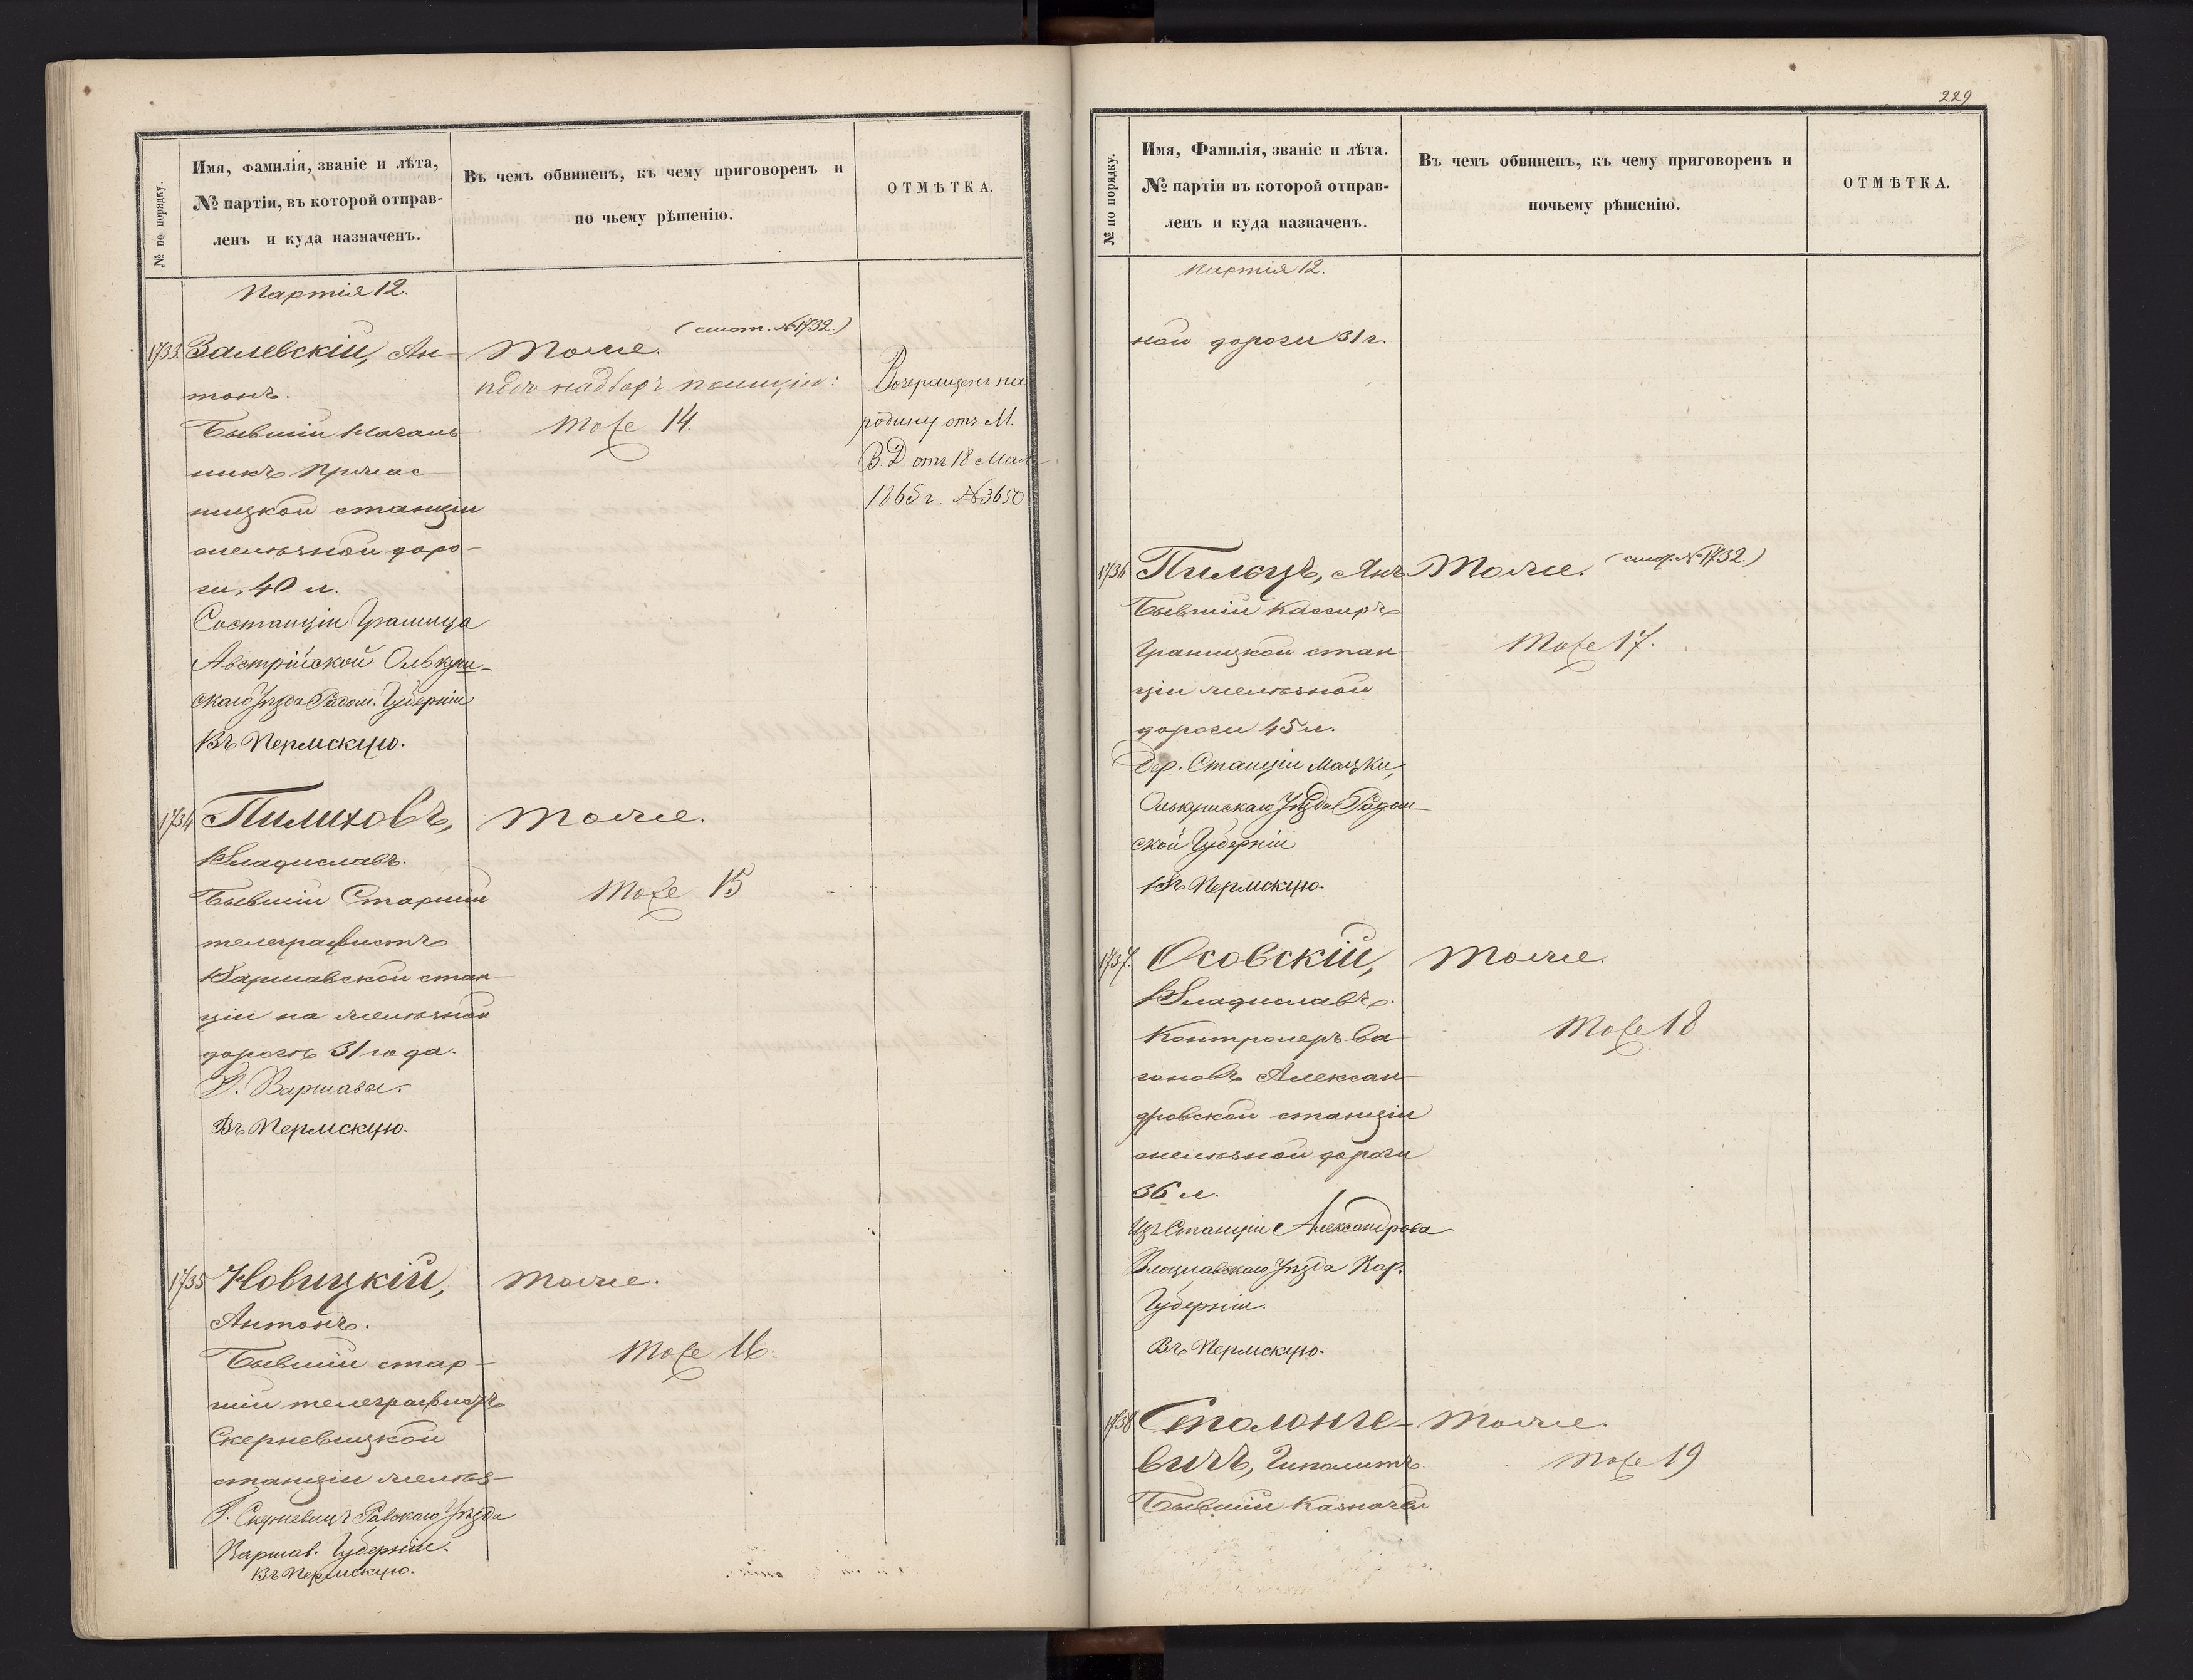 № по порядку.
Имя, фамилія, званіе и лѣта,
№ партіи, въ которой отправ-
ленъ и куда назначенъ.
Въ чемъ обвиненъ, къ чему приговоренъ и
по чьему рѣшенію.
ОТМѢТКА.
Партія 12.
1733 Залевскій, Ан-
тонъ.
Бывшій Началь
никъ
ницкой станціи
желѣзной доро-
ги, 40 л.
Со станціи Граница
Австрійской Олькуш-
скаго Уѣзда Радом. Губерніи
Въ Пермскую.
(смот. № 1732.)
Тоже.
подъ надзоръ полиціи:
Тоже 14.
Возвращенъ на
родину отъ М.
В. Д. отъ 18 Мая
1865 г. № 3650
1734 Пилиховъ,
Владиславъ.
Бывшій Старшій
телеграфистъ
Варшавской стан-
ціи на желѣзной
дорогѣ 31 года.
Г. Варшавы.
Въ Пермскую.
Тоже.
Тоже 15
1735 Новицкій,
Антонъ.
Бывшій стар-
шій телеграфистъ
Скерневицкой
станціи желѣз-
Г. Скерневицъ Равскаго Уѣзда
Варшав. Губерніи.
Въ Пермскую.
Тоже.
Тоже 16.
229
№ по порядку.
Имя, Фамилія, званіе и лѣта.
№ партіи въ которой отправ-
ленъ и куда назначенъ.
Въ чемъ обвиненъ, къ чему приговоренъ и
почьему рѣшенію.
ОТМѢТКА.
Партія 12.
ной дороги 31 г.
1736 Пильцъ, Янъ
Бывшій Кассиръ
Границкой стан
ціи желѣзной
дороги 45 л.
Станціи Мацки,
Олькушскаго Уѣзда Радом-
ской Губерніи
Въ Пермскую.
Тоже. (смот. № 1732.)
Тоже 17.
1737. Осовскій,
Владиславъ.
Контролеръ ва
гоновъ Алексан-
дровской станціи
желѣзной дороги
36 л.
Изъ Станціи Александрова
Влоцлавскаго Уѣзда Вар.
Губерніи.
Въ Пермскую.
Тоже.
Тоже 18
1738 Столонге-
вичъ, Гиполитъ.
Бывшій Казначей
Тоже.
Тоже 19